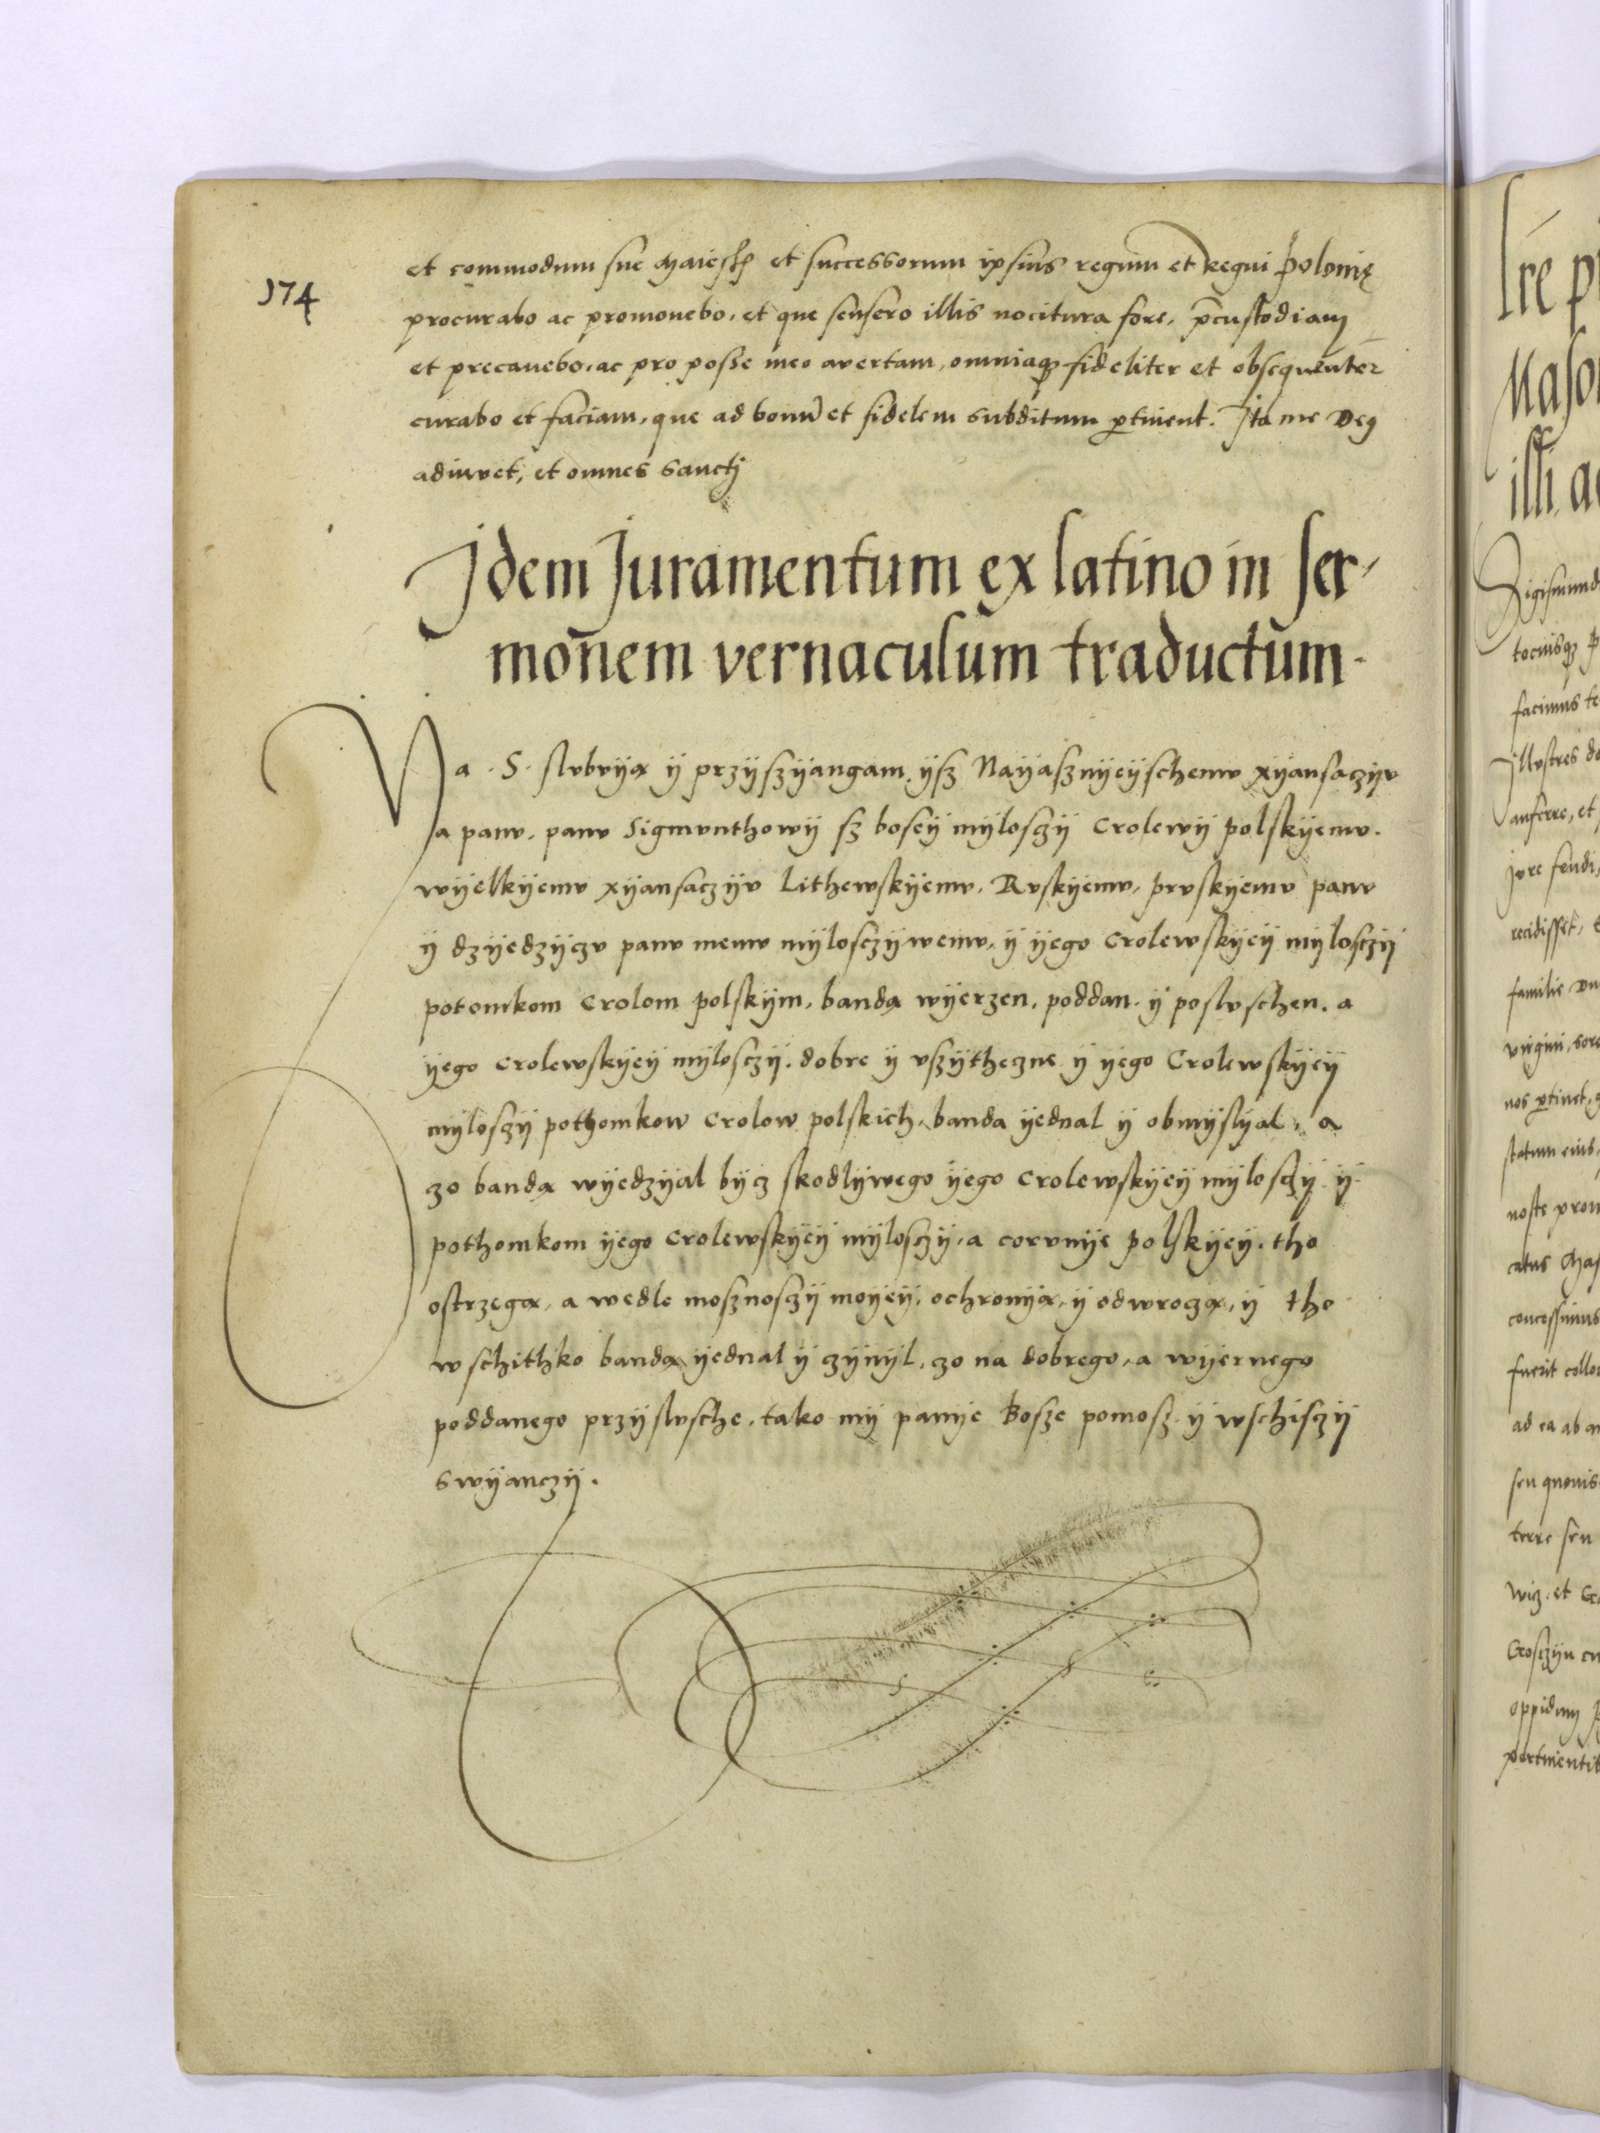 174
et commodum sue Maiestatis et successorum ipsius regum et Regni Polonię
procurabo ac promouebo, et que sensero illis nocitura fore, p̄custodiam
et precauebo, ac pro posse meo avertam, omniaqꝫ fideliter et obsequenter
curabo et faciam, que ad bonū et fidelem subditum ꝑtinent. Ita me Deꝯ
adiuvet, et omnes sanctj
Idem Juramentum ex latino in ser-
monem vernaculum traductum.
Ya . S. slvbvyą y przyszyangam, ysz Nayasznyeyschemv xyansaczyv
a panv, panv Sigmvnthowy sz bosey myloszy Crolewy polskyemv.
wyelkyemv xyansaczyv Lithewskyemv, Rvskyemv, prvskyemv panv
y dzyedzyczv panv memv mylosczywemv, y yego Crolewskyey mylosczy
potomkom Crolom polskym, bandą wyerzen, poddan. y poslvschen. a
yego Crolewskyey mylosczy. dobre y vszytheczne y yego Crolewskyey
myloszy pothomkow Crolow polskich, banda yednal y obmyslyal, a
zo bandą wyedzyal bycz skodlywego yego Crolewskyey mylosczy y
pothomkom yego Crolewskyey mylosczy, a corvnye polskyey. tho
ostrzegą, a wedle mosznosczy moyey, ochronyą, y odwroczą, y tho
wschithko bandą yednal y czynyl, zo na dobrego, a wyernego
poddanego przyslvsche, tako my panye Bosze pomosz y wschisczy
swyanczy.
Ire p
Maso
illi a
Sigismund
tocuisqꝫ p
facimus te
Illvstres do
anferre, et
jvre feudi,
recidisset,
familie Du
virgini, soro
nos ꝑtinet,
statum
noste prou
catus Mas
concessimus
fuerit collo
ad ea ab an
seu quouis
terre seu
wiz. et
Crosczyn cu
oppidum
pertinentib